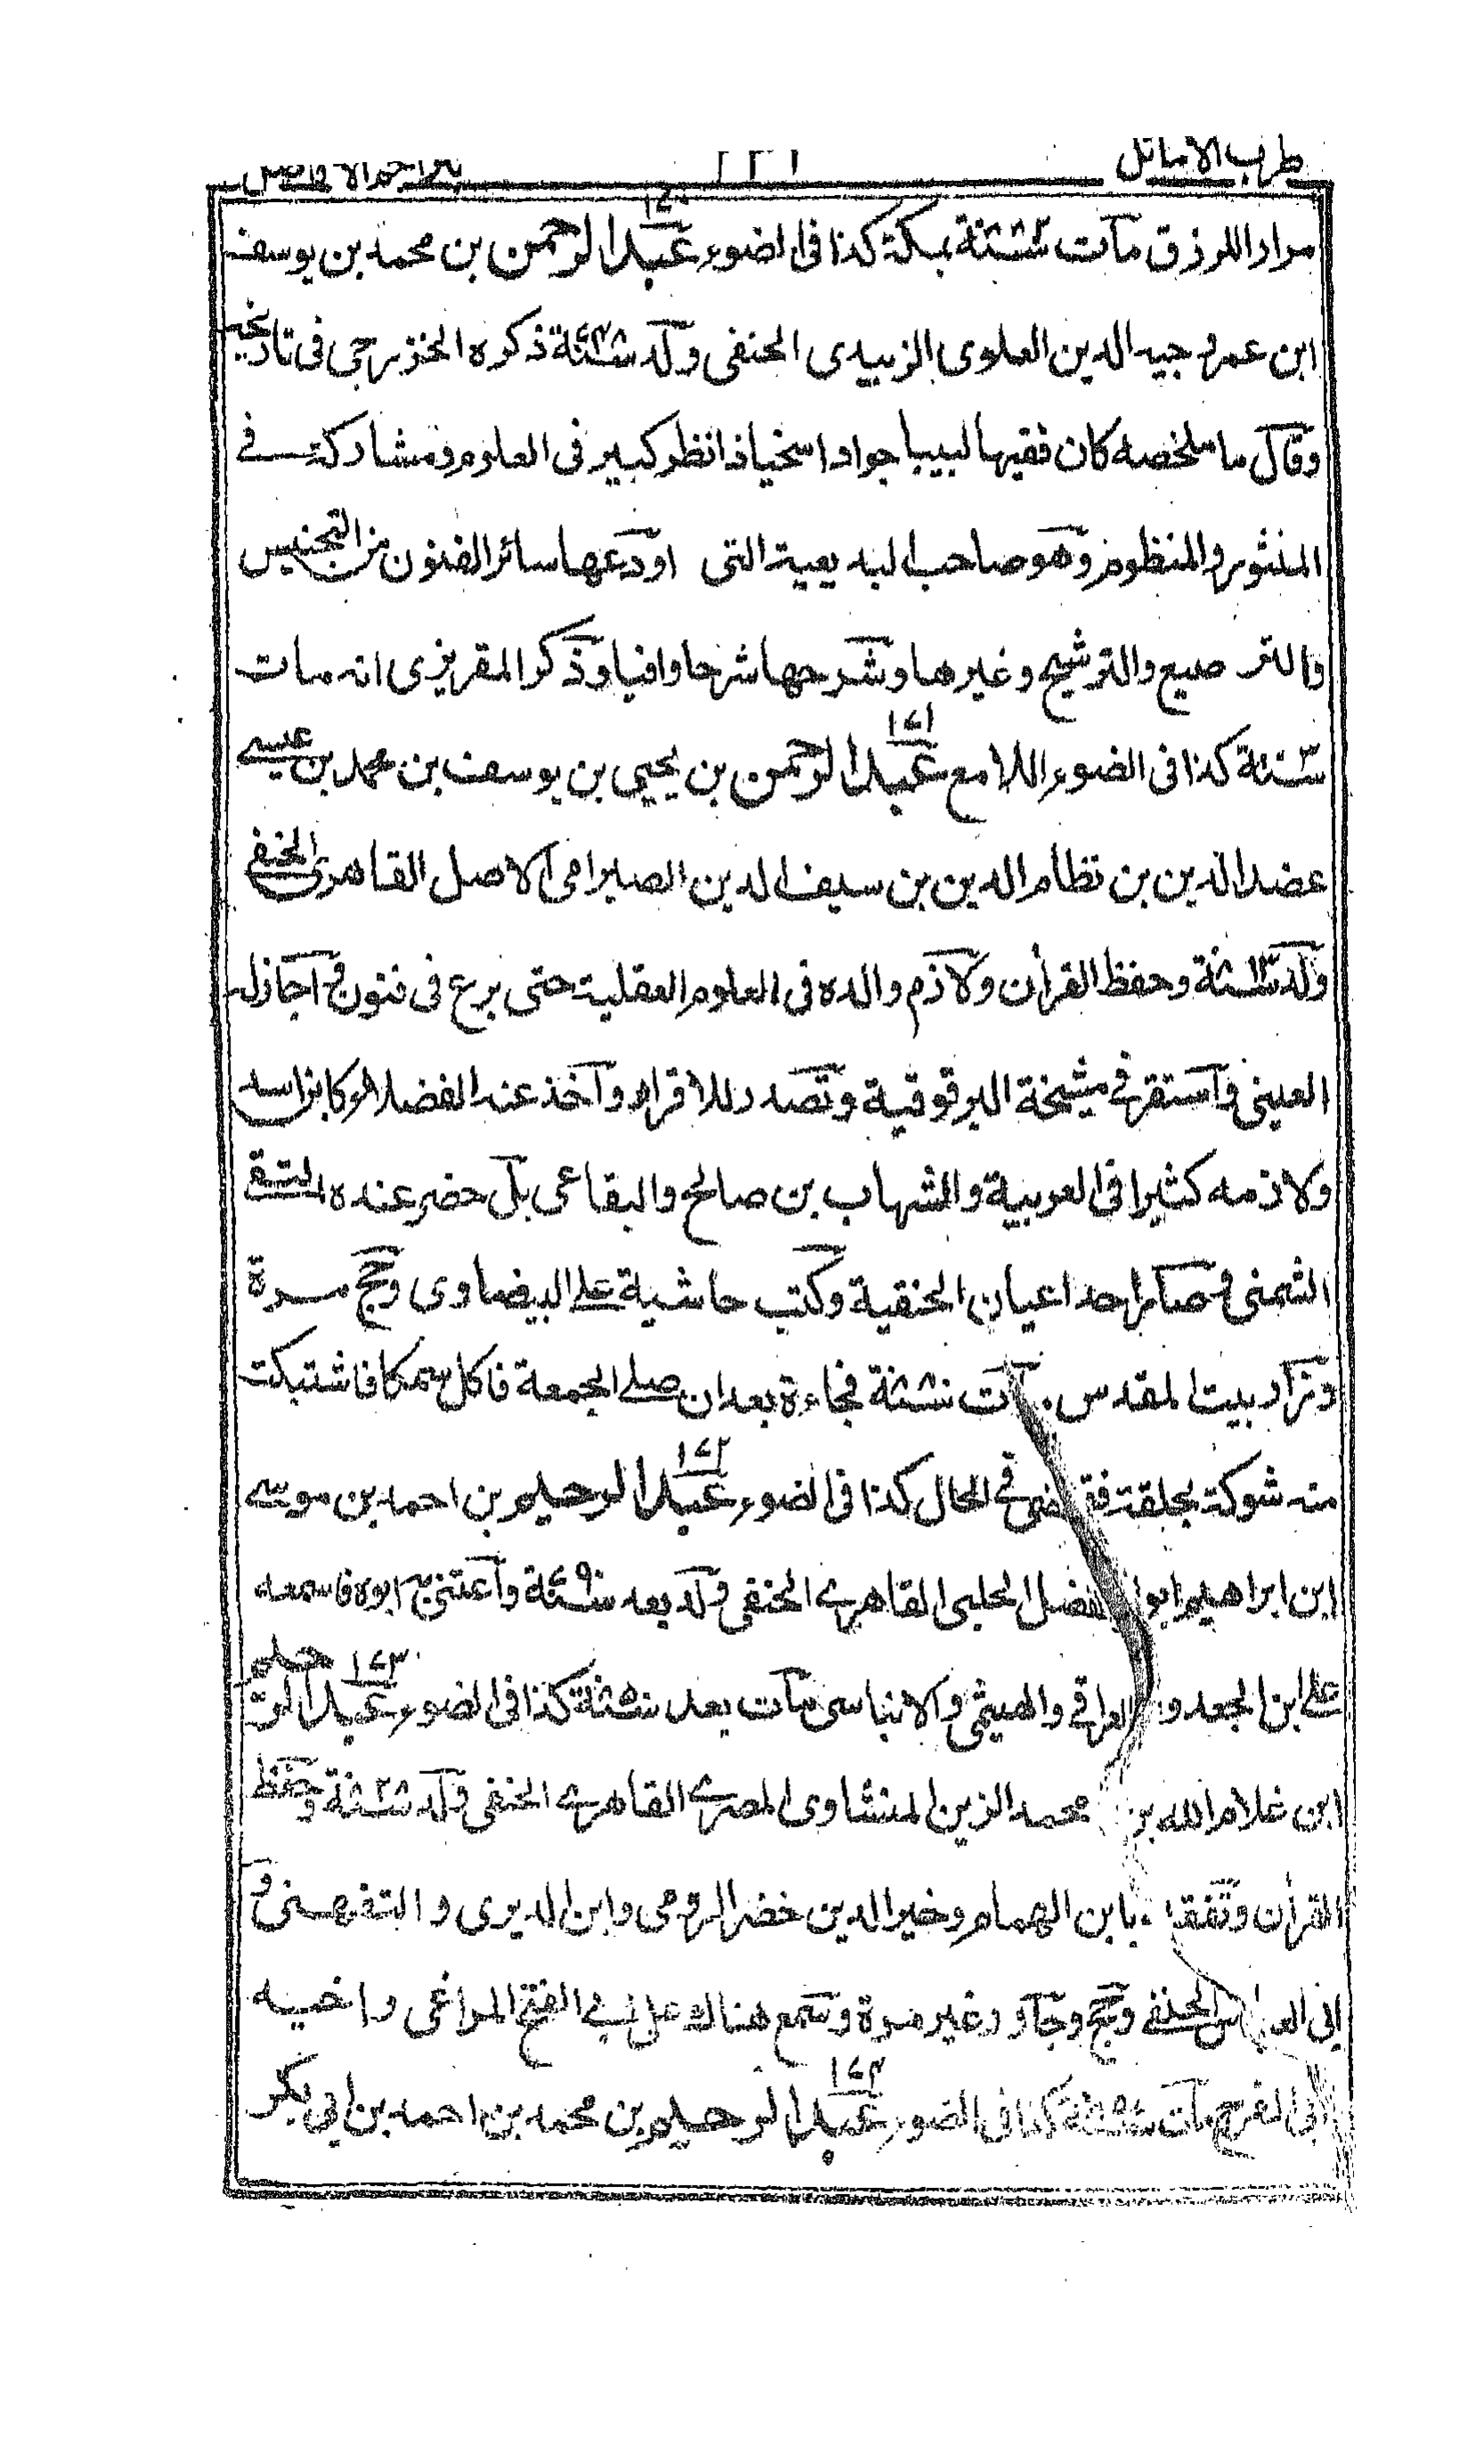 طرب الاماثل
مرار اللرزق مآت سنة بمكة كذا فى الضوء عبد الرحمن بن محمد بن يوسف
ابن عمر وجيه الدين العلوى الزبيدى الحنفى ولد سنة ذكره الخزرجى فى تاريخه
وقال ما ملخصه كان فقيها لبيبا جوادا سخيا ذا نظر كبير فى العلوم ومشاركة فے
المنثور والمنظوم وهو صاحب البديعية التى اودعها سائر الفنون من التجنيس
والترصيع والترشيح وغيرها وشرحها شرحا وافيا وذكر المقريزى انه مات
سنة كذا فى الضوء اللامع ١٤١ عبد الرحمن بن يحيى بن يوسف بن محمد بن عيسے
عضد الدين بن نظام الدين بن سيف الدين الصيرامى الاصل القاهرى الحنفے
ولد سنة وحفظ القرأن ولازم والده فى العلوم العقلية حتى برع فى فنون واجاز له
العينى واستقر فے مشيخة البرقوقية وتصدر للاقراء وآخذ عنه الفضلاء كابن اسد
ولازمه كثيرا فى العربية والشهاب بن صالح والبقاعى بل حضر عنده التقے
الشمنى وصار احد اعيان الحنفية وكتب حاشية علے البيضاوى وحج مرة
وزار بيت المقدس مآت سنة فجاءة بعد ان صلے الجمعة فاكل سمكا فاشتبكت
منه شوكة بحلقة فقضى فے الحال كذا فى الضوء ١٤٢ عبد الرحيم بن احمد بن موسے
ابن ابراهيم ابو الفضل الحلبى القاهرے الحنفى ولد بعد سنة واعتنى به ابوه فاسمعه
علے ابن الجعد والعراقے والهيثمى والانباسى مآت بعد سنة كذا فى الضوء ١٤٣ عبد الرحيم
ابن غلام الله بن محمد الزين المنشاوى المصرے القاهرے الحنفى ولد سنة وحفظ
القرأن وتفقه بابن الهمام وخير الدين خضر الرومى وابن الديرى والتفهنى و
ابى العباس الحنفے وحج وجاور غير مرة وسمع هناك على ابے الفتح المراغى واخيه
ابى الفرج مات سنة كذا فى الضوء ١٤٤ عبد الرحيم بن محمد بن احمد بن ابى بكر